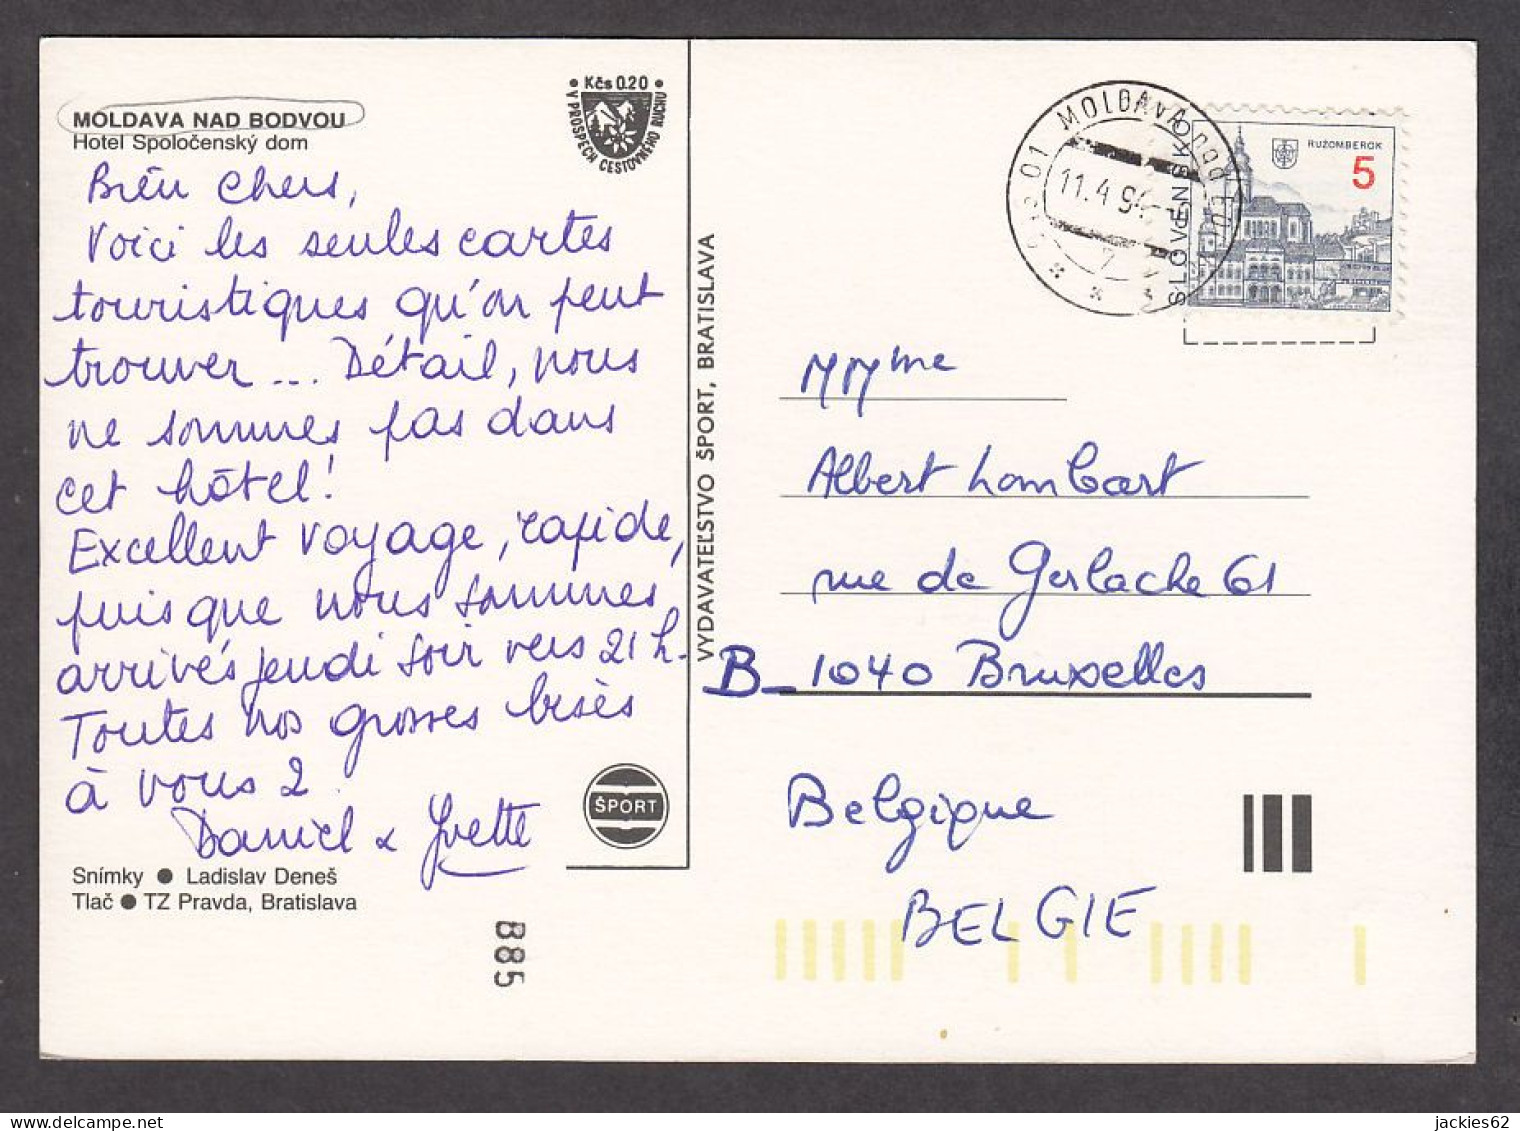 MOLDAVA NAD BODVOU
Hotel Spoločenský dom
Kčs 0.20
V PROSPECH CESTOVNÉHO RUCHU
Bien chers,
Voici les seules cartes
touristiques qu'on peut
trouver ... Détail, nous
ne sommes pas dans
cet hôtel!
Excellent voyage, rapide,
puisque nous sommes
arrivés jeudi soir vers 21 h.
Toutes nos grosses bises
à vous 2
Daniel & Yvette
Snímky ● Ladislav Deneš
Tlač ● TZ Pravda, Bratislava
B85
ŠPORT
VYDAVATEĽSTVO ŠPORT, BRATISLAVA
MOLDAVA nad Bodvou
01
11.4.94
7
SLOVENSKO
RUŽOMBEROK
5
MMme
Albert Lombart
rue de Gerlache 61
B_1040 Bruxelles
Belgique
BELGIE
jackies62